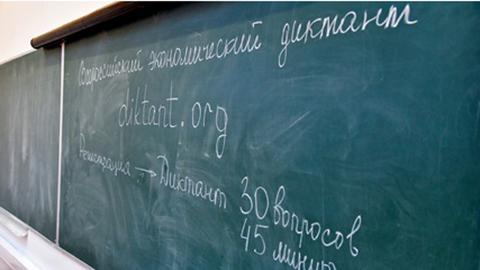 Всероссийский экономический диктант
diktant.org
Регистрация → Диктант 30 вопросов
45 минут